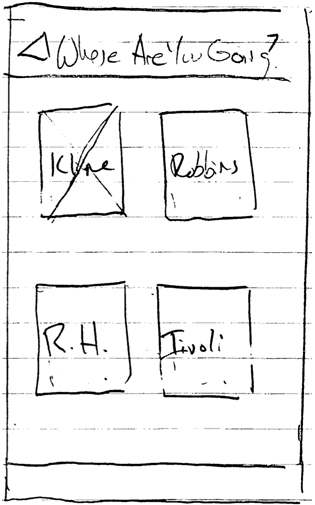 Where Are You Going?
Kline Robbins
R.H. Tivoli